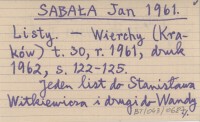 SABAŁA Jan 1961.
Listy. — Wierchy (Kra-
ków) t. 30, r. 1961, druk
1962, s. 122-125.
Jeden list do Stanisława
Witkiewicza i drugi do Wandy